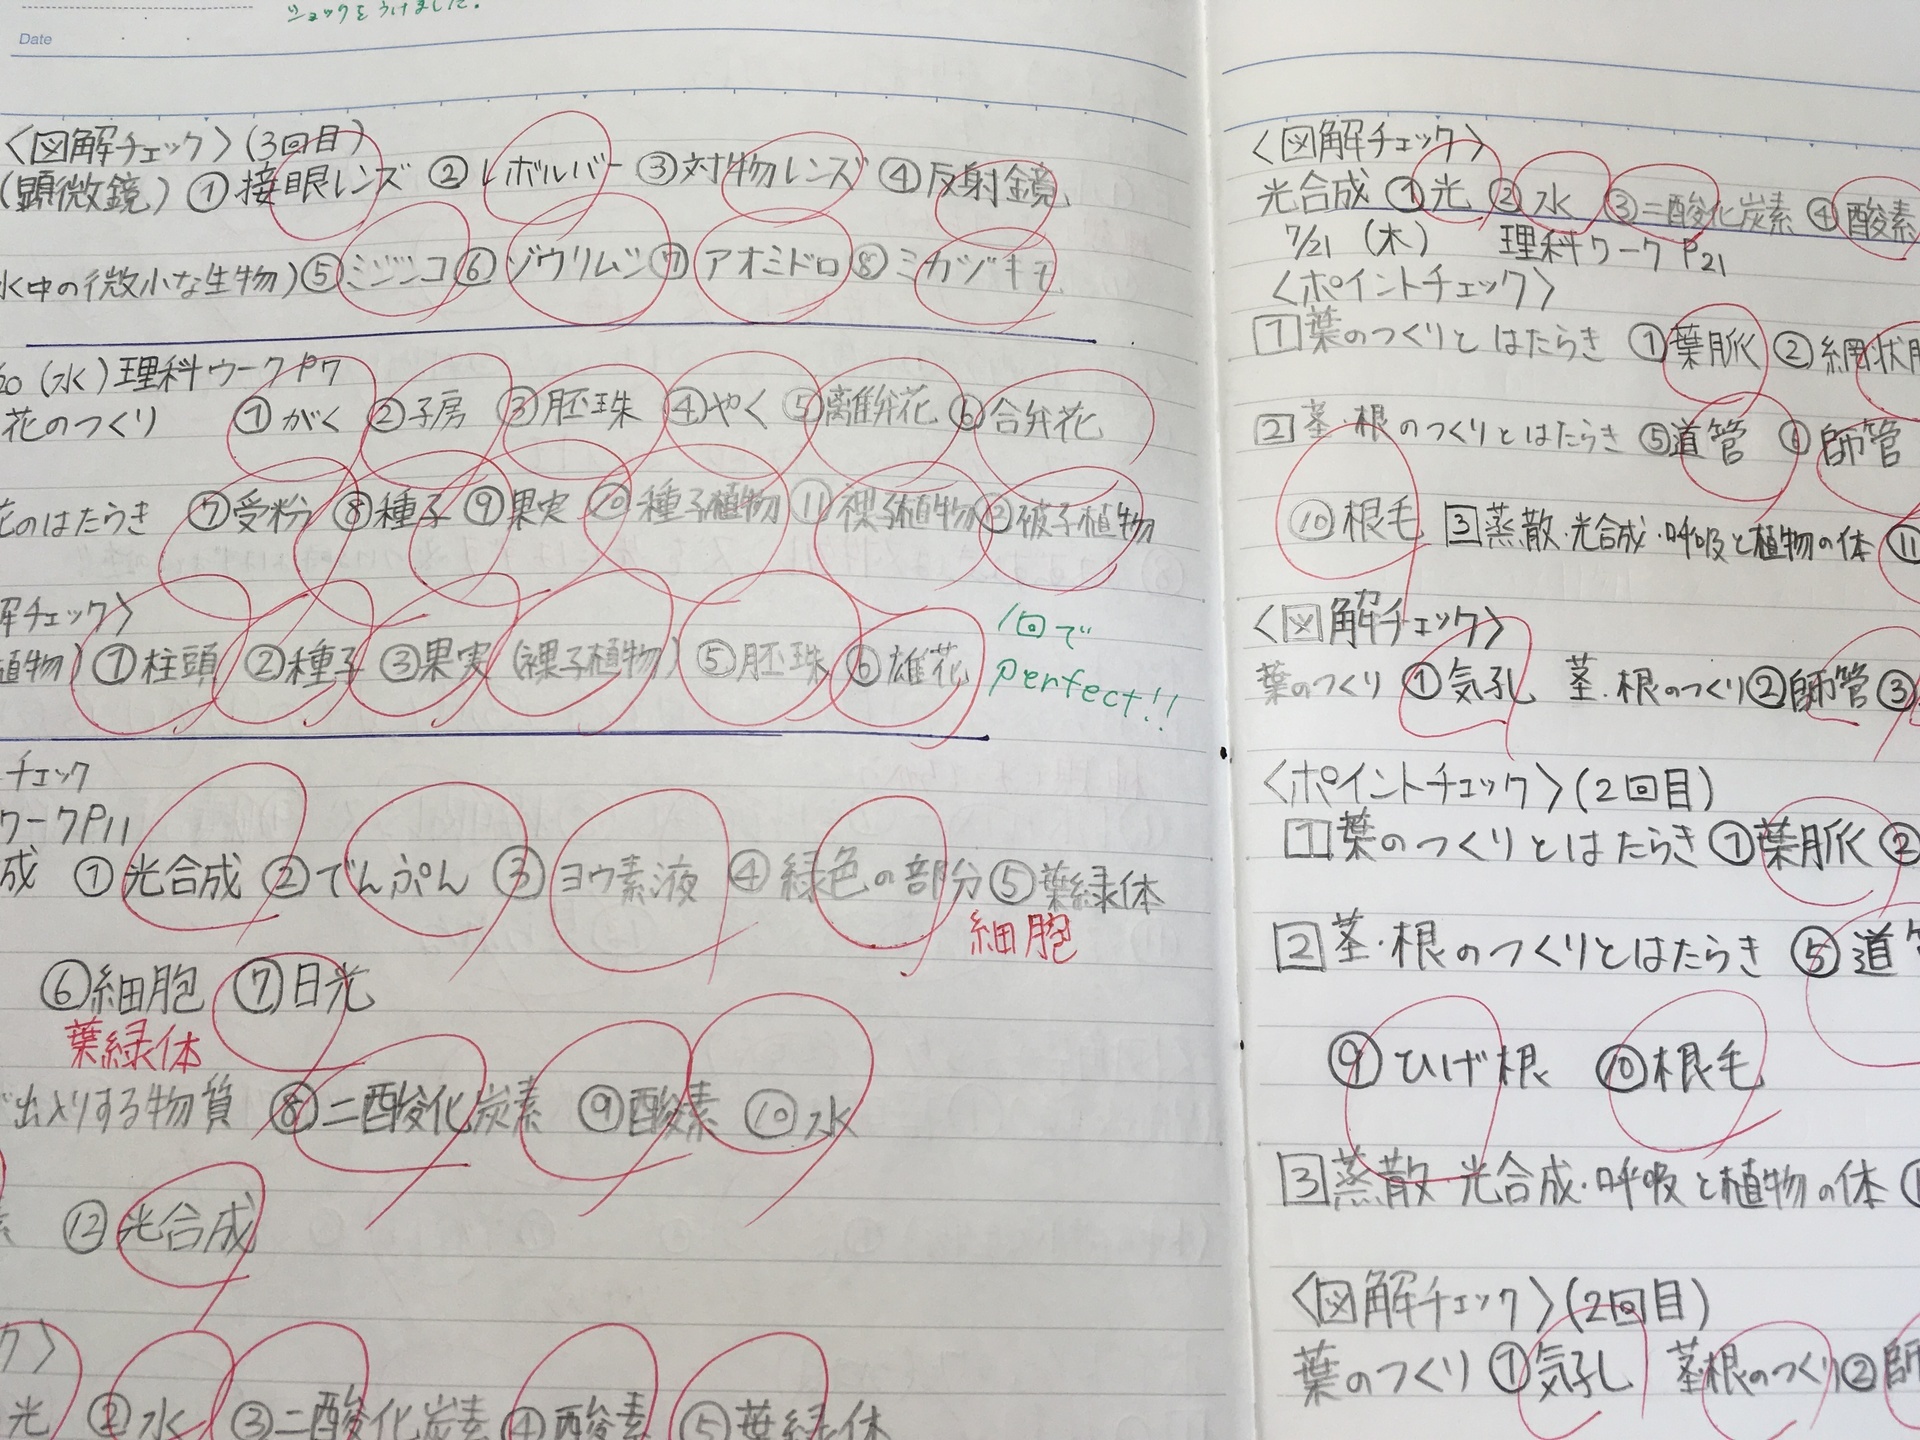 ショックをうけました。
Date
〈図解チェック〉(3回目)
(顕微鏡) ①接眼レンズ ②レボルバー ③対物レンズ ④反射鏡
水中の微小な生物) ⑤ミジンコ ⑥ゾウリムシ ⑦アオミドロ ⑧ミカヅキモ
20(水)理科ワークP7
花のつくり ①がく ②子房 ③胚珠 ④やく ⑤離弁花 ⑥合弁花
花のはたらき ⑦受粉 ⑧種子 ⑨果実 ⑩種子植物 ⑪裸子植物 ⑫被子植物
解チェック〉
植物) ①柱頭 ②種子 ③果実 (裸子植物) ⑤胚珠 ⑥雄花
1回で
perfect!!
チェック
ワークP11
成 ①光合成 ②でんぷん ③ヨウ素液 ④緑色の部分 ⑤葉緑体
細胞
⑥細胞 ⑦日光
葉緑体
出入りする物質 ⑧二酸化炭素 ⑨酸素 ⑩水
⑫光合成
ク〉
光 ②水 ③二酸化炭素 ④酸素 ⑤葉緑体
〈図解チェック〉
光合成 ①光 ②水 ③二酸化炭素 ④酸素
7/21(木) 理科ワークP21
〈ポイントチェック〉
1 葉のつくりとはたらき ①葉脈 ②網状
2 茎・根のつくりとはたらき ⑤道管 ⑥師管
⑩根毛 3 蒸散・光合成・呼吸と植物の体 ⑪
〈図解チェック〉
葉のつくり ①気孔 茎・根のつくり ②師管 ③
〈ポイントチェック〉(2回目)
1 葉のつくりとはたらき ①葉脈 ②
2 茎・根のつくりとはたらき ⑤道
⑨ひげ根 ⑩根毛
3 蒸散・光合成・呼吸と植物の体
〈図解チェック〉(2回目)
葉のつくり ①気孔 茎根のつくり ②師